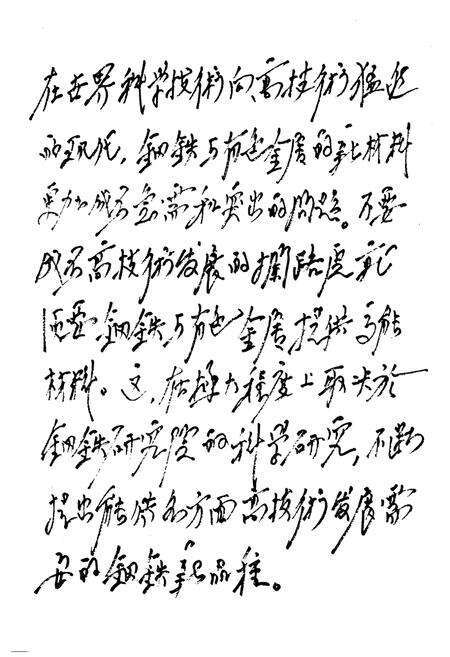 在世界科学技術向高技術猛進
的現代，鋼鉄与有色金属的新材料
更加成为急需和突出的问题。不要
成为高技術发展的攔路虎，就
鋼鉄与有色金属提供高能
材料。这，在極大程度上取决於
鋼鉄研究院的科学研究，不断
提出能供各方面高技術发展需
要的鋼鉄新品種。